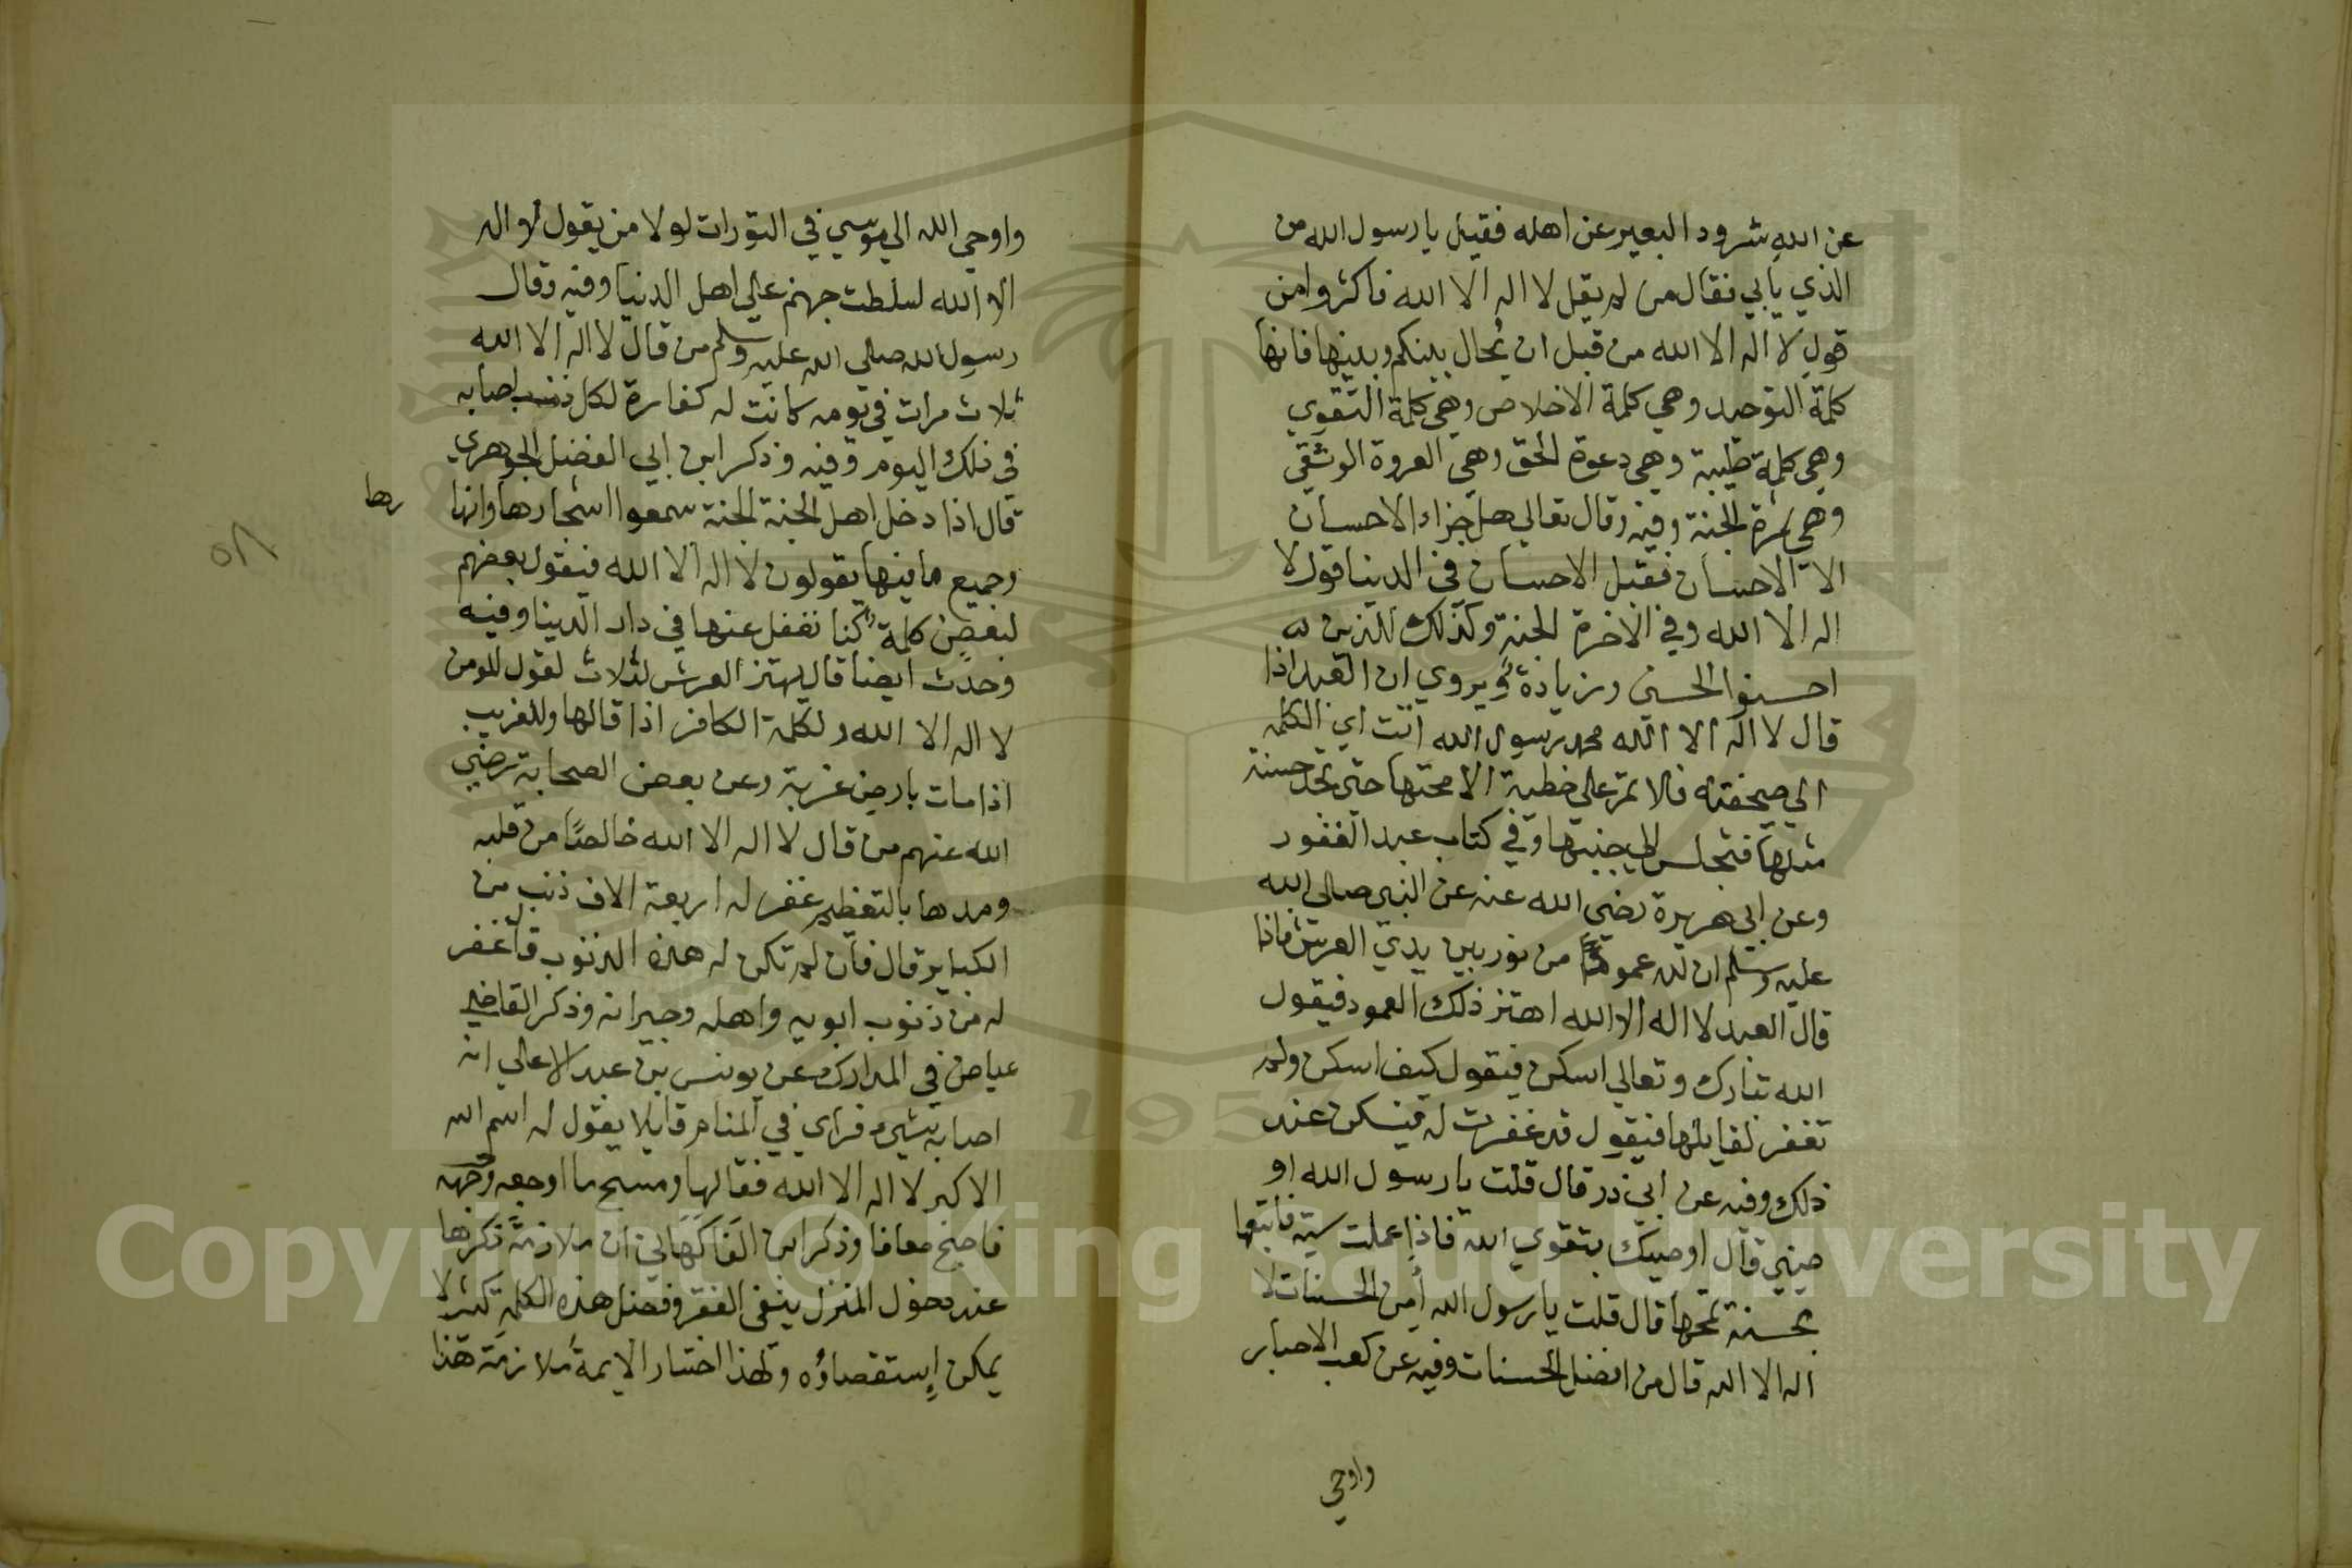 عن الله شرود البعير عن اهله فقيل يا رسول الله من
الذي يابي فقال من لم يقل لا اله الا الله فاكثروا من
قول لا اله الا الله من قبل ان يُحال بينكم وبينها فانها
كلمة التوحيد وهي كلمة الاخلاص وهي كلمة التقوي
وهي كلمة طيبة وهي دعوة الحق وهي العروة الوثقي
وهي ثمرة الجنة وفيه وقال تعالي هل جزاء الاحسان
الا الاحسان فقيل الاحسان في الدنيا قول لا
اله الا الله وفي الاخرة الجنة وكذلك للذين
احسنوا الحسني وزيادة ويروي ان العبد اذا
قال لا اله الا الله محمد رسول الله اتت اي الكلمة
الي صحيفته فلا تمر علي خطية الا محتها حتي تجد حسنة
مثلها فتجلس الي جنبها وفي كتاب عبد الغفور
وعن ابي هريرة رضي الله عنه عن النبي صلي الله
عليه وسلم ان لله عمودا من نور بين يدي العرش فاذا
قال العبد لا اله الا الله اهتز ذلك العمود فيقول
الله تبارك وتعالي اسكن فيقول كيف اسكن ولم
تغفر لقايلها فيقول قد غفرت له فيسكن عند
ذلك وفيه عن ابي ذر قال قلت يا رسول الله او
صيني قال اوصيك بتقوي الله فاذا عملت سية فاتبعها
بحسنة تمحها قال قلت يا رسول الله أمِن الحسنات لا
اله الا الله قال من افضل الحسنات وفيه عن كعب الاحبار
واوحي
واوحي الله الي موسي في التورات لولا من يقول لا اله
الا الله لسلطت جهنم علي اهل الدنيا وفيه وقال
رسول الله صلي الله عليه وسلم من قال لا اله الا الله
ثلاث مرات في يومه كانت له كفارة لكل ذنب اصابه
في ذلك اليوم وفيه وذكر ابن ابي الفضل الجوهري
قال اذا دخل اهل الجنة الجنة سمعوا اشجارها وانها
رها
وجميع ما فيها يقولون لا اله الا الله فيقول بعضهم
لبعض كلمة كنا نغفل عنها في دار الدنيا وفيه
وحدث ايضا قال يهتز العرش لثلاث لقول المومن
لا اله الا الله ولكلمة الكافر اذا قالها وللغريب
اذا مات بارض غربة وعن بعض الصحابة رضي
الله عنهم من قال لا اله الا الله خالصًا من قلبه
ومدها بالتعظيم غفر له اربعة الاف ذنب من
الكباير قال فان لم تكن له هذه الذنوب قال غفر
له من ذنوب ابويه واهله وجيرانه وذكر القاضي
عياض في المدارك عن يونس بن عبد الاعلي انه
اصابه شيء فراي في المنام قايلا يقول له اسم الله
الاكبر لا اله الا الله فقالها ومسح ما اوجعه وجهه
فاصبح معافا وذكر ابن الفاكهاني ان ملازمة ذكرها
عند دخول المنزل ينفي الفقر وفضل هذه الكلمة كثير لا
يمكن إستقصاؤه ولهذا اختار الايمة ملازمة هذا
Copyright © King Saud University
1957